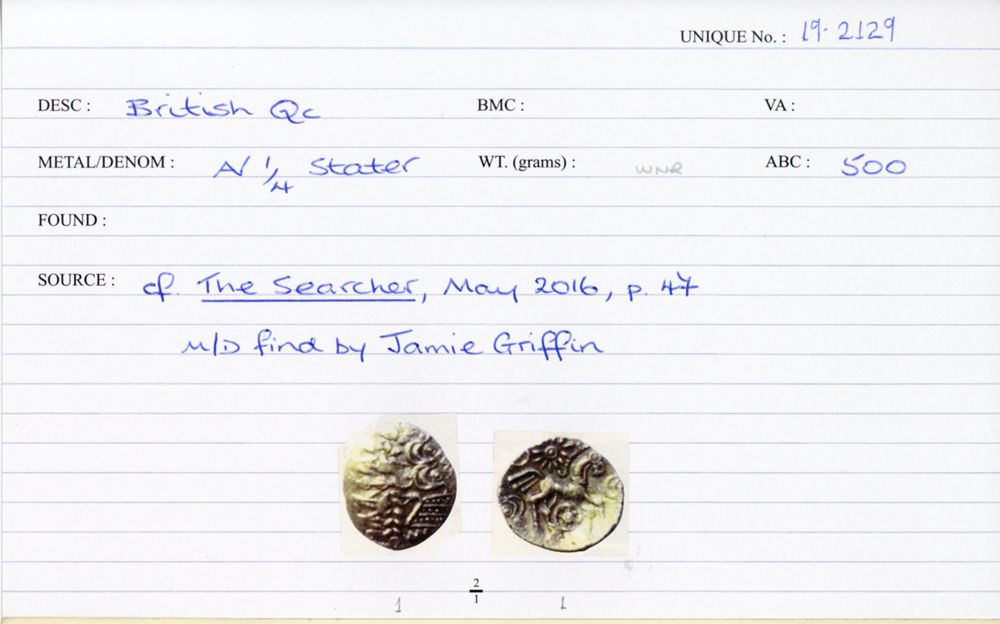 UNIQUE No. : 19-2129
DESC : British Qc BMC : VA :
METAL/DENOM : A/ 1/4 Stater WT. (grams) : WNR ABC : 500
FOUND :
SOURCE : cf. The Searcher, May 2016, p. 47
M/D find by Jamie Griffin
2
1
1 1